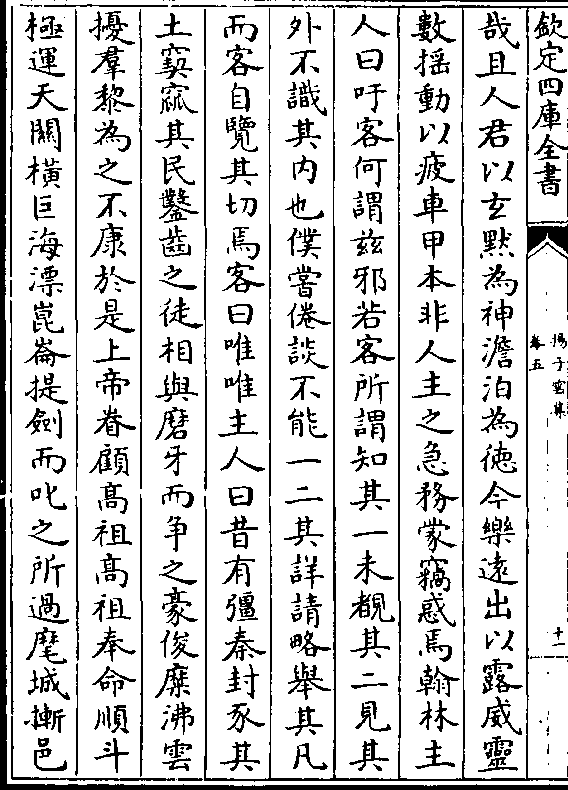 欽定四庫全書
揚子雲集
卷五
十一
哉且人君以玄黙為神澹泊為徳今樂逺出以露威靈
數揺動以疲車甲本非人主之急務蒙竊惑焉翰林主
人曰吁客何謂兹邪若客所謂知其一未覩其二見其
外不識其内也僕嘗倦談不能一二其詳請略舉其凡
而客自覽其切焉客曰唯唯主人曰昔有彊秦封豕其
土窫窳其民鑿齒之徒相與磨牙而争之豪俊糜沸雲
擾羣黎為之不康於是上帝眷顧髙祖髙祖奉命順斗
極運天關横巨海漂崑崙提劍而叱之所過麾城摲邑